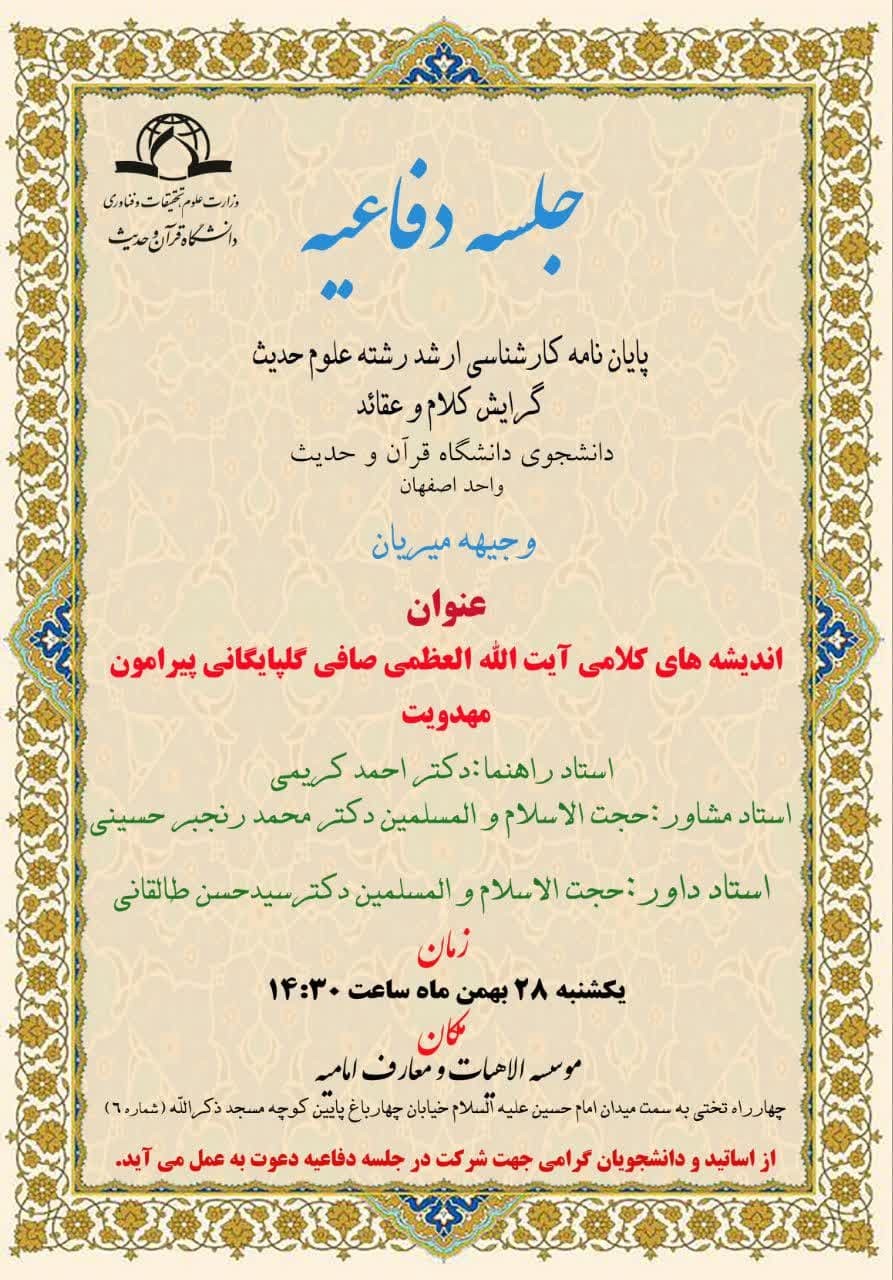 وزارت علوم، تحقیقات و فناوری
دانشگاه قرآن و حدیث
جلسه دفاعیه
پایان نامه کارشناسی ارشد رشته علوم حدیث
گرایش کلام و عقائد
دانشجوی دانشگاه قرآن و حدیث
واحد اصفهان
وجیهه میریان
عنوان
اندیشه های کلامی آیت الله العظمی صافی گلپایگانی پیرامون
مهدویت
استاد راهنما:دکتر احمد کریمی
استاد مشاور:حجت الاسلام و المسلمین دکتر محمد رنجبر حسینی
استاد داور:حجت الاسلام و المسلمین دکترسیدحسن طالقانی
زمان
یکشنبه ۲۸ بهمن ماه ساعت ۱۴:۳۰
مکان
موسسه الاهیات و معارف امامیه
چهارراه تختی به سمت میدان امام حسین علیه السلام خیابان چهارباغ پایین کوچه مسجد ذکرالله (شماره ۶)
از اساتید و دانشجویان گرامی جهت شرکت در جلسه دفاعیه دعوت به عمل می آید.